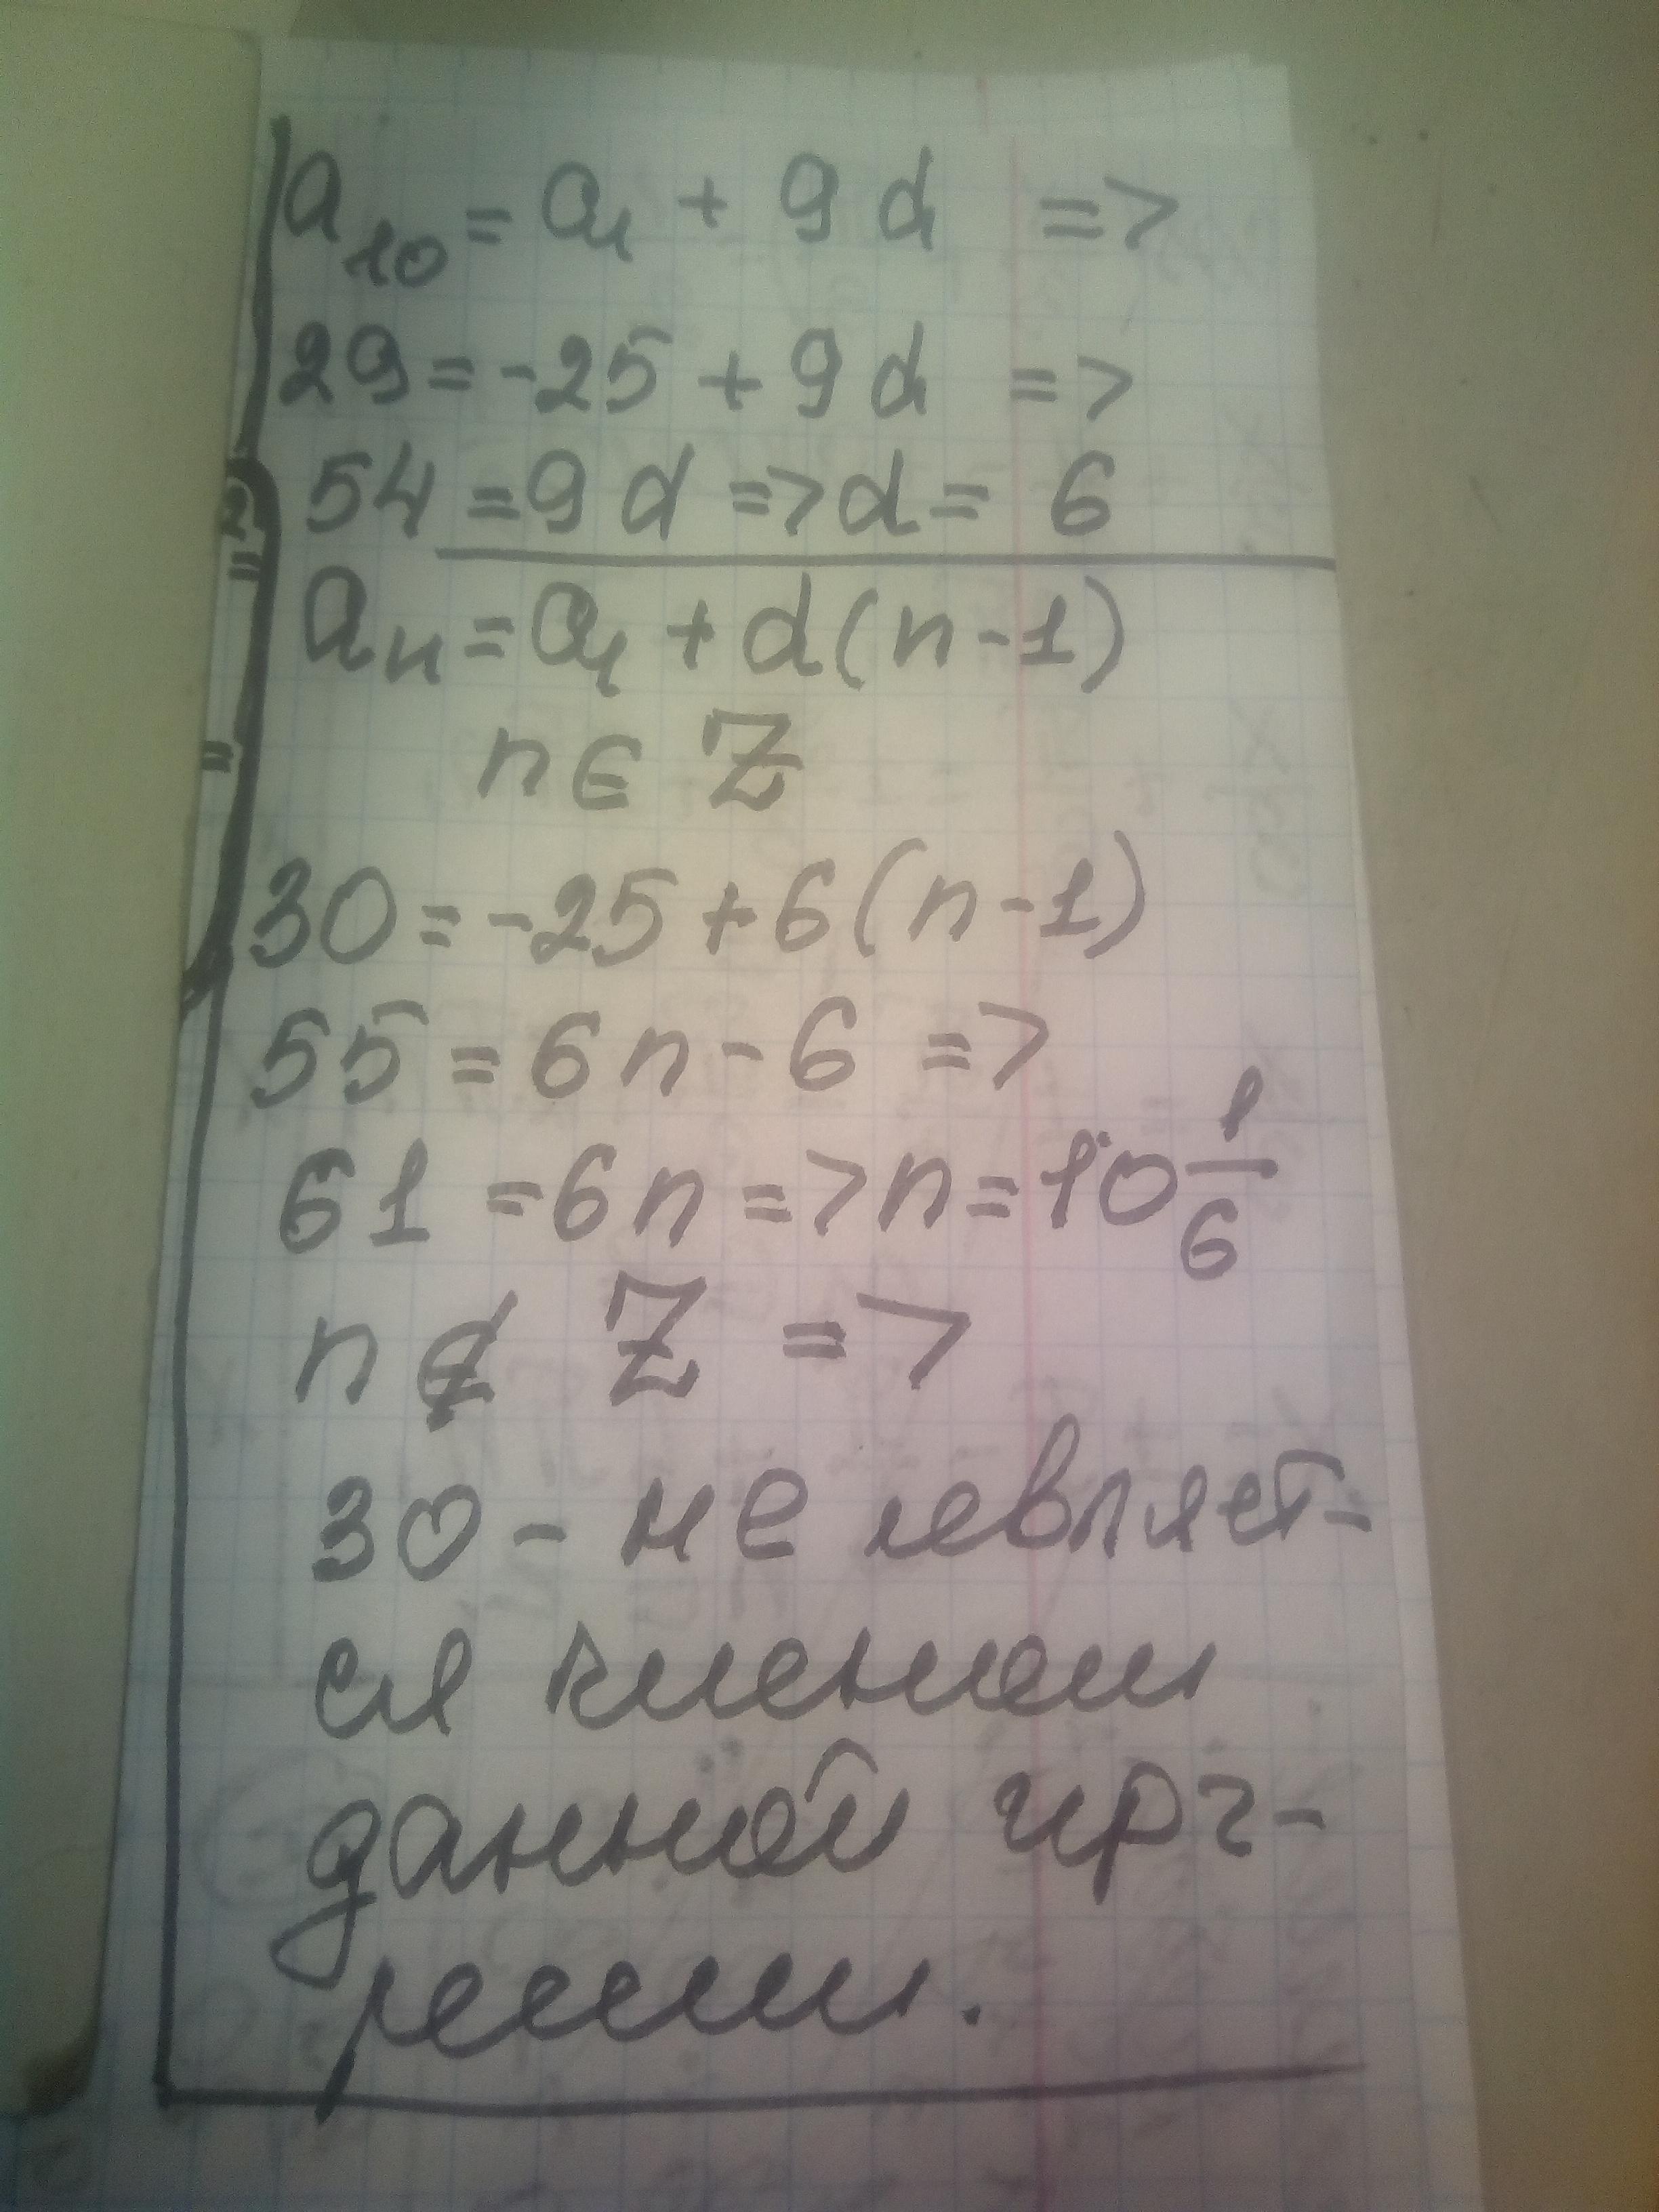 a₁₀ = a₁ + 9d =>
29 = -25 + 9d =>
54 = 9d => d = 6
aₙ = a₁ + d(n-1)
n ∈ Z
30 = -25 + 6(n-1)
55 = 6n - 6 =>
61 = 6n => n = 10 1/6
n ∉ Z =>
30 - не являет-
ся членом
данной